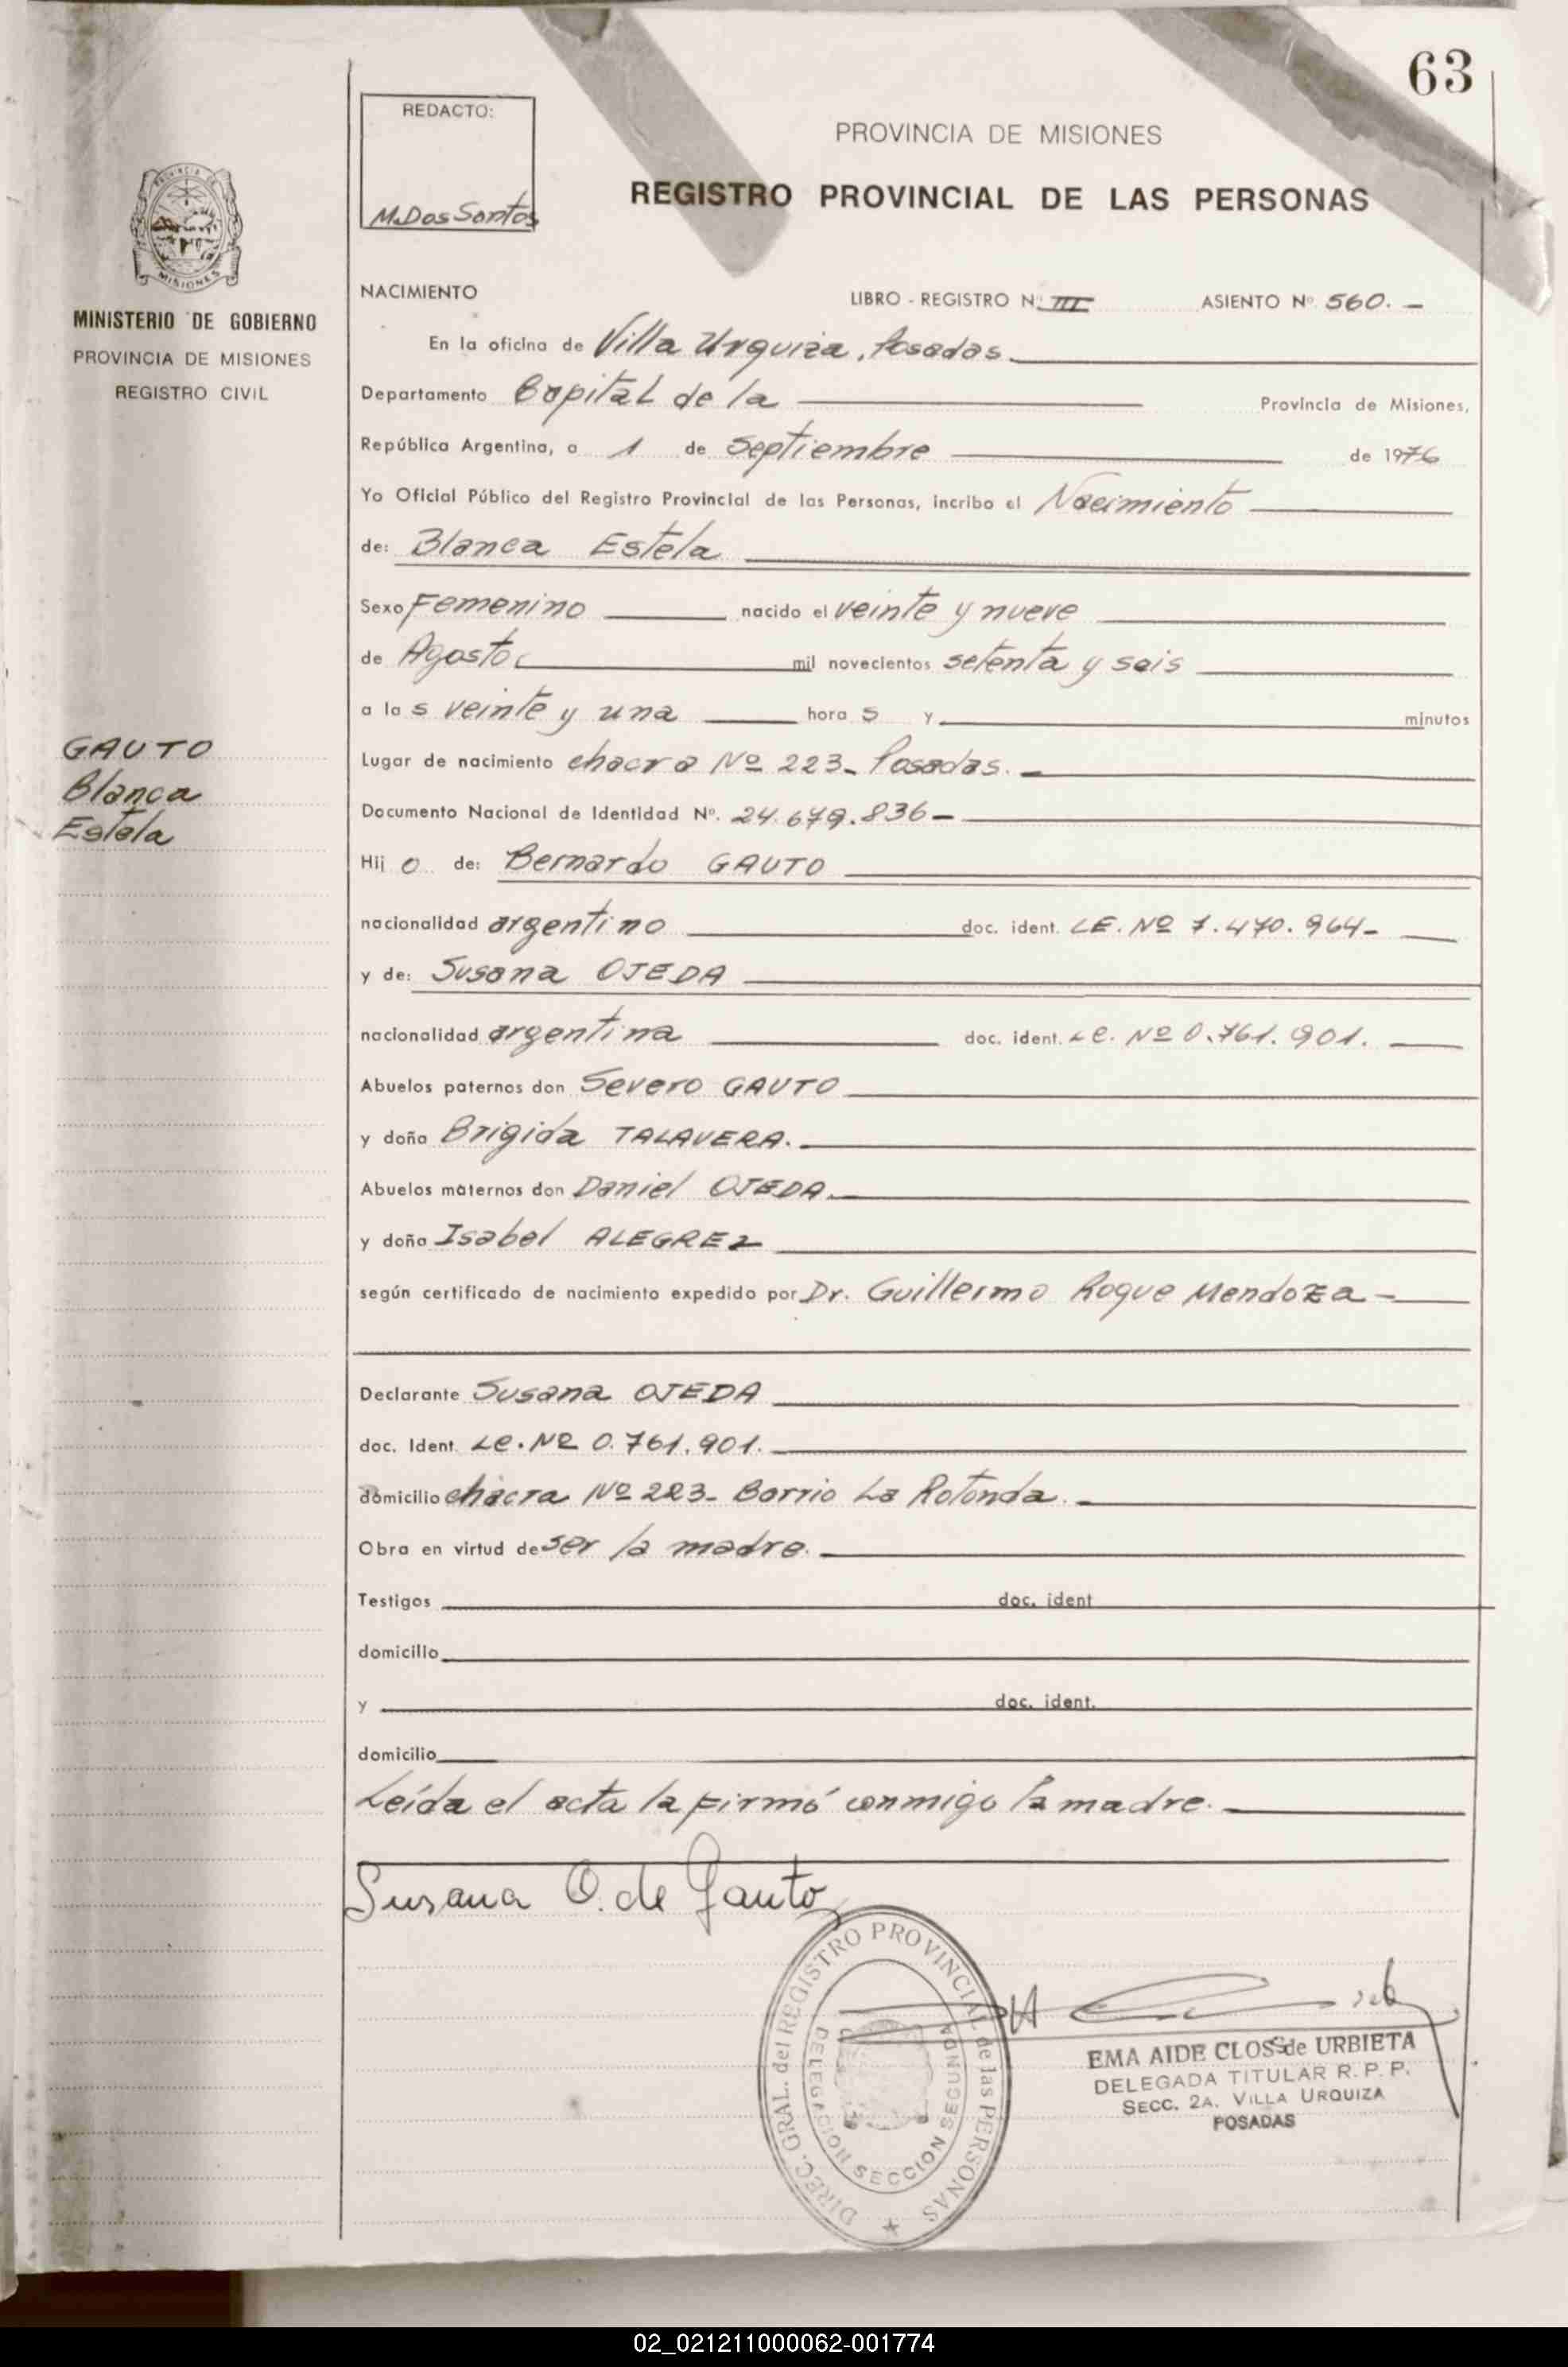 63
REDACTO:
M. Dos Santos
PROVINCIA DE MISIONES
REGISTRO PROVINCIAL DE LAS PERSONAS
MISIONES
MINISTERIO DE GOBIERNO
PROVINCIA DE MISIONES
REGISTRO CIVIL
NACIMIENTO LIBRO - REGISTRO Nº III ASIENTO Nº 560. -
En la oficina de Villa Urquiza, Posadas
Departamento Capital de la Provincia de Misiones,
República Argentina, a 1 de Septiembre de 1976
Yo Oficial Público del Registro Provincial de las Personas, incribo el Nacimiento
de: Blanca Estela
Sexo Femenino nacido el veinte y nueve
de Agosto mil novecientos setenta y seis
a la s veinte y una hora s y minutos
GAUTO
Blanca
Estela
Lugar de nacimiento chacra Nº 223- Posadas. -
Documento Nacional de Identidad Nº. 24.679.836-
Hij o de: Bernardo GAUTO
nacionalidad argentino doc. ident. LE. Nº 7.470.964-
y de: Susana OJEDA
nacionalidad argentina doc. ident. LC. Nº 0.761.901.
Abuelos paternos don Severo GAUTO
y doña Brigida TALAVERA.
Abuelos maternos don Daniel OJEDA.
y doña Isabel ALEGREZ
según certificado de nacimiento expedido por Dr. Guillermo Roque Mendoza -
Declarante Susana OJEDA
doc. Ident. LC. Nº 0.761.901.
domicilio chacra Nº 223- Barrio La Rotonda. -
Obra en virtud de ser la madre.
Testigos doc. ident
domicilio
y doc. ident.
domicilio
Leída el acta la firmó conmigo la madre.
Susana O. de Gauto
DIREC. GRAL. del REGISTRO PROVINCIAL de las PERSONAS
DELEGACION SECCION SEGUNDA
EMA AIDE CLOSS de URBIETA
DELEGADA TITULAR R. P. P.
SECC. 2A. VILLA URQUIZA
POSADAS
02_021211000062-001774